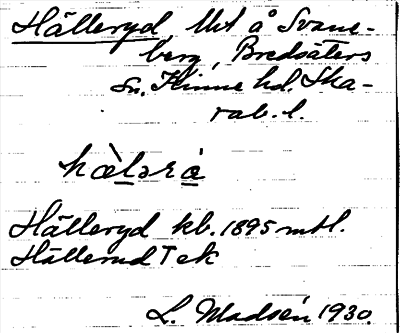 Hälleryd, Utt å Svane-
berg, Bredsäters
sn. Kinne hd. Ska-
rab. l.
hæ̀lərə
Hälleryd kb. 1895 mtl.
Hällerud T ek
L. Madsén 1930.